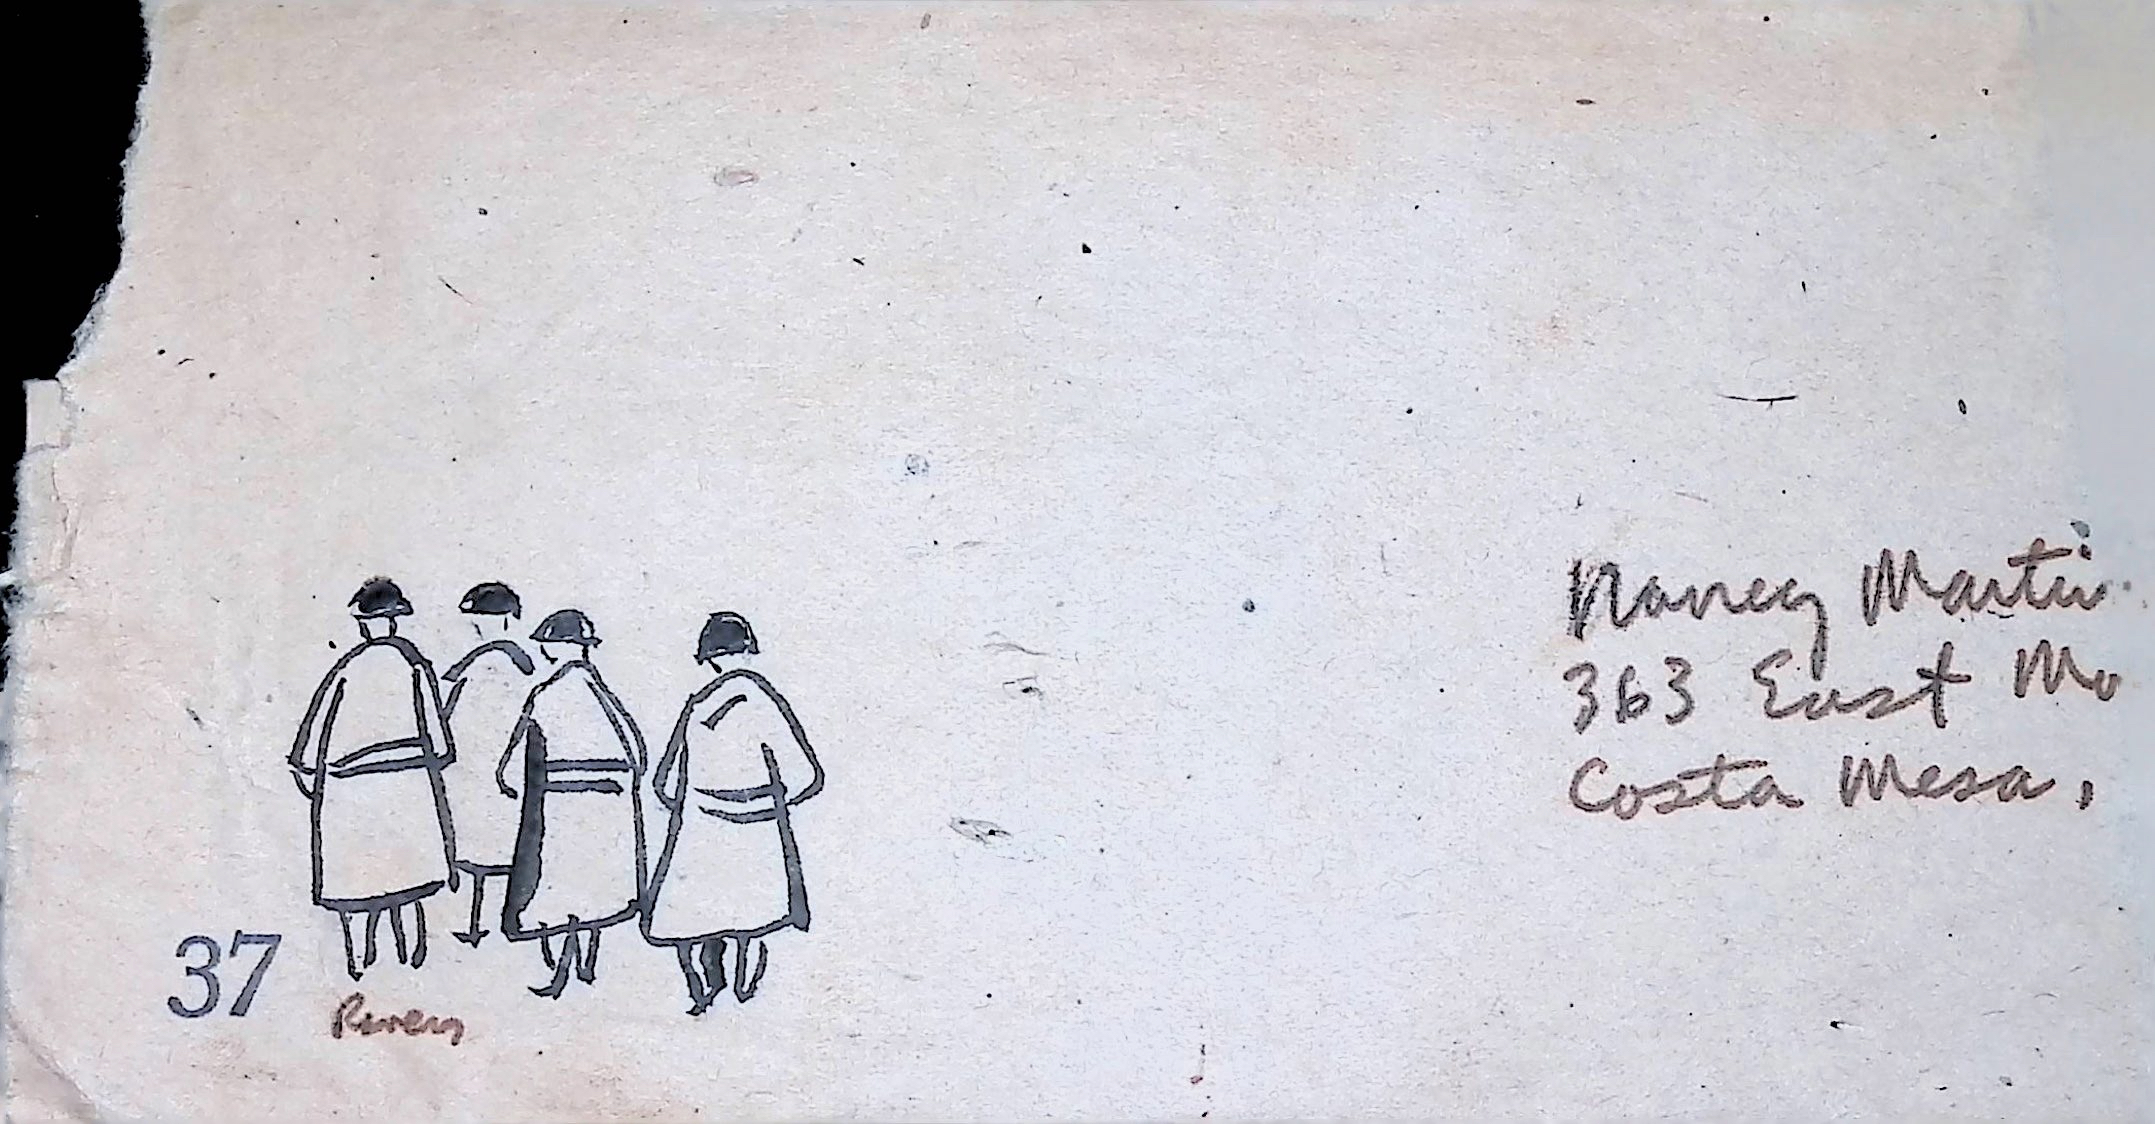 Nancy Martin
363 East Mo
Costa Mesa,
37